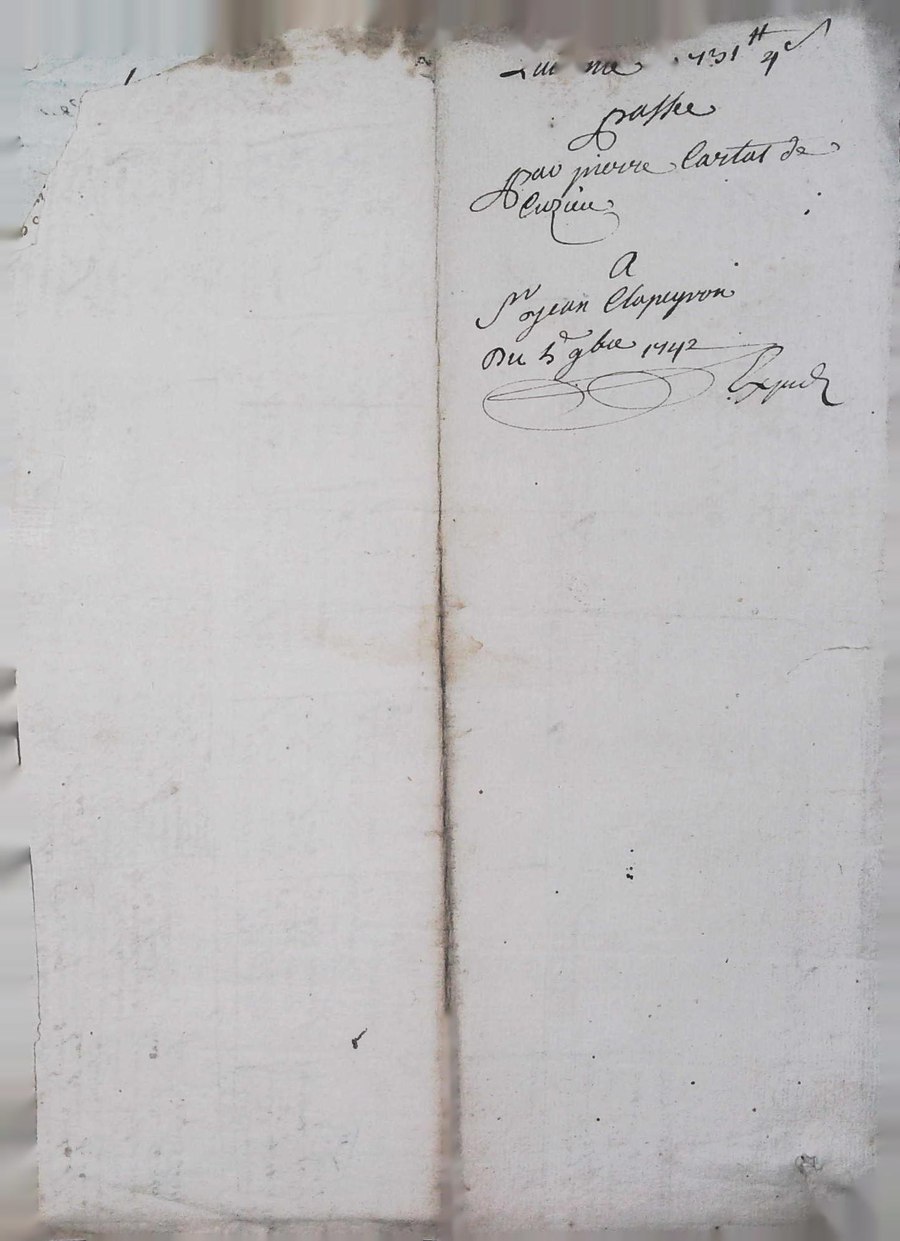 731 ₶ 4 s
passée
par pierre Cartal de
Cuzieu
A
Sr jean Clapeyron
Du 5e 9bre 1742